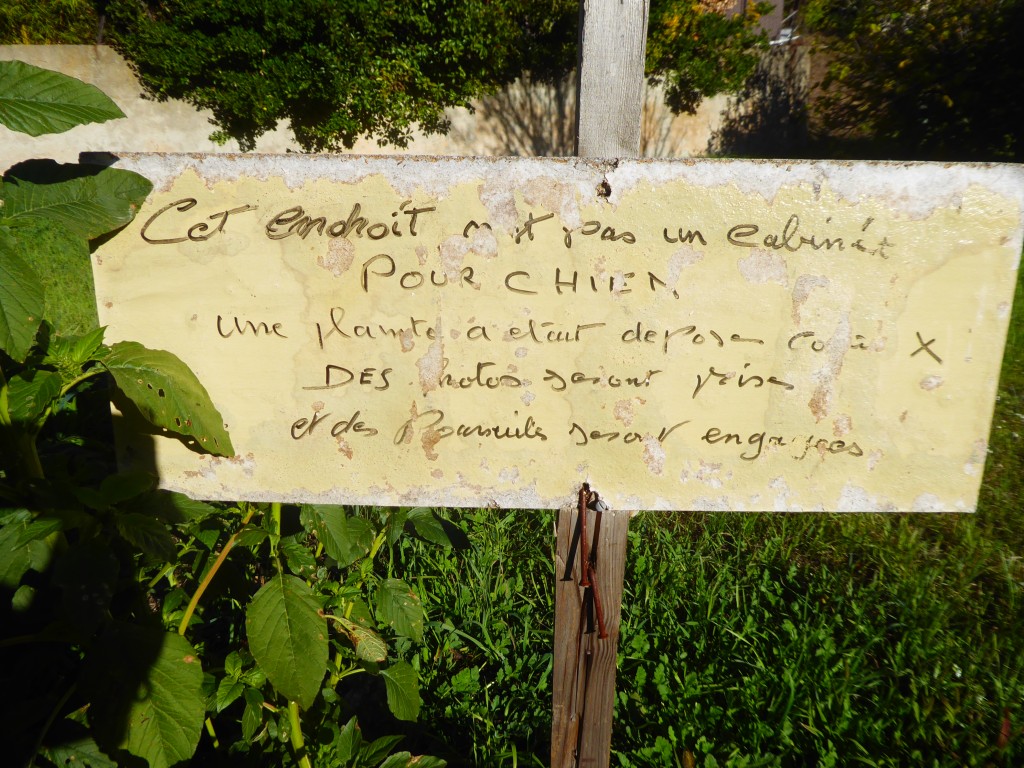 Cet endroit pas un cabinét
POUR CHIEN
une plainte a etait deposer X
DES Photos seront prises
et des Poursuites seront engagees